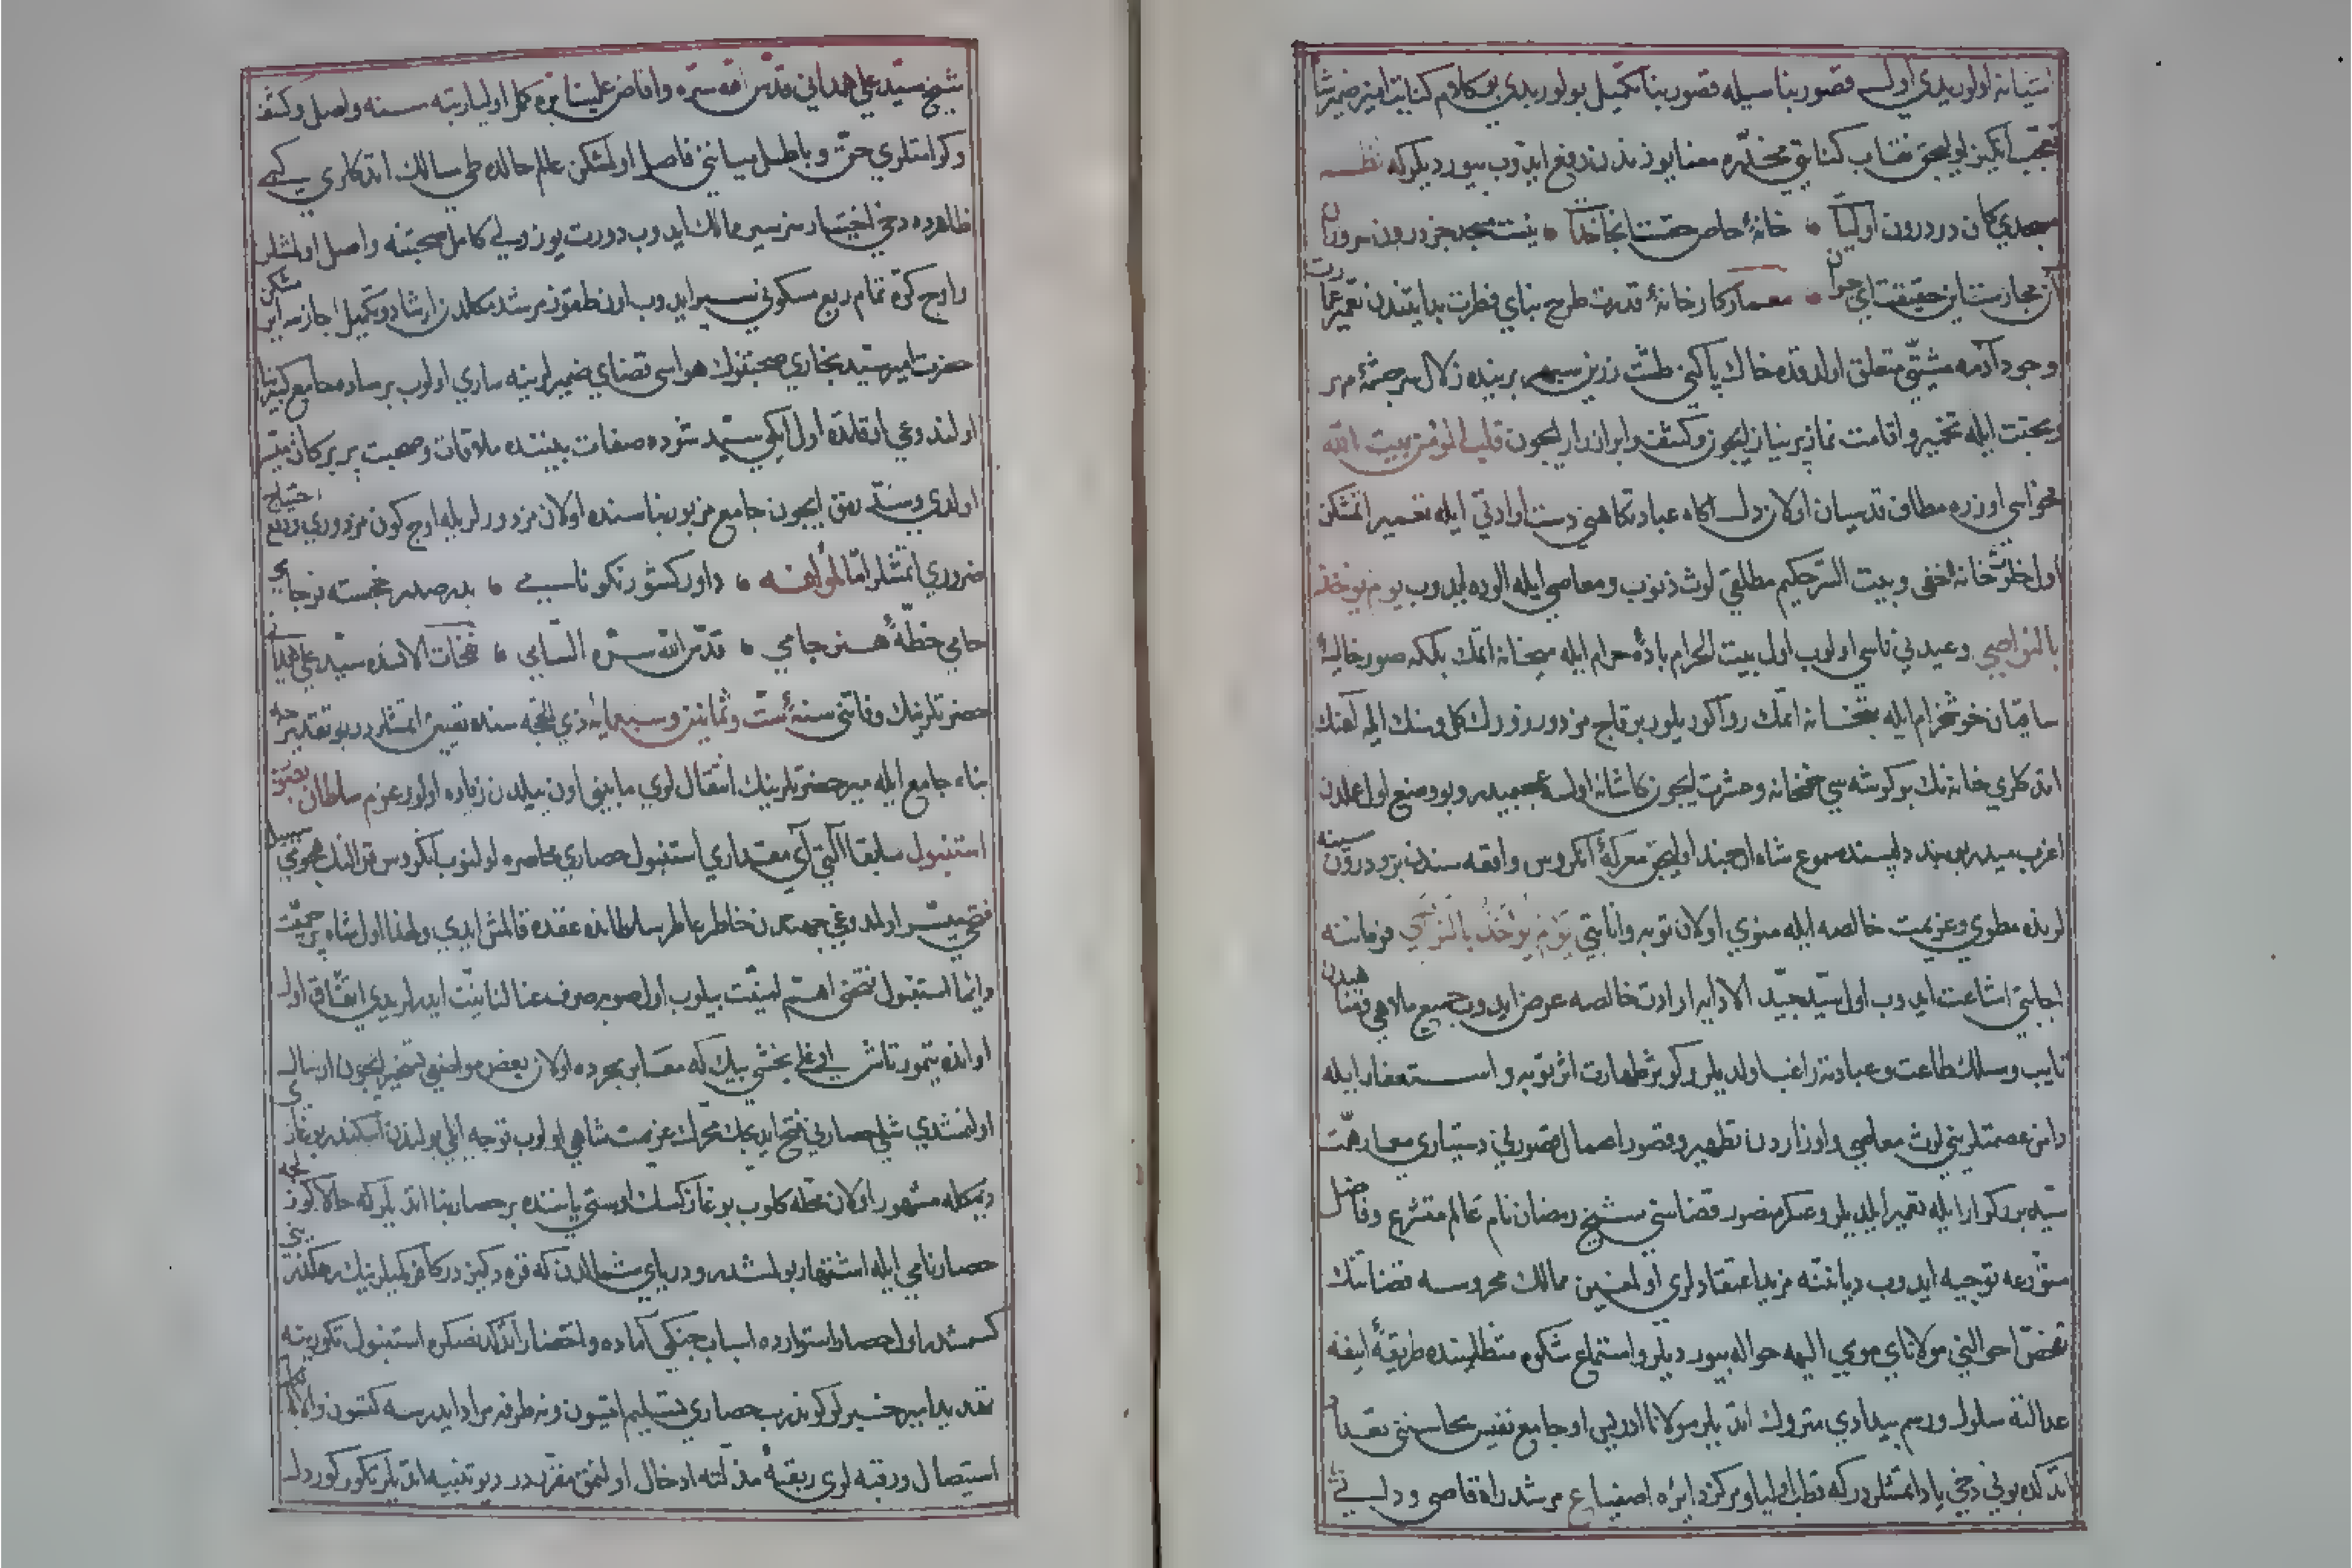 اولوریدی اولسه قصور بنا سیله قصور بنا تکمیل بولوریدی بو کلام
تعجب انکیز نقاب کنایتی مخدره معنا یوزندن رفع ایدوب بیوردیلرکه نظم
مسجدی کان در درون اولیا • خانهٔ خاص حقست انجا خدا • نیست مسجد جز درون سروران
آن مجازست این حقیقت ای خران • معمار کارخانهٔ قدرت طرح بنای فطرت
وجود آدمه مشیتی متعلق اولدقده خاک پاکنی طشت زرین سپهر برینده زلال سرچشمهٔ مهر
ومحبت ایله تخمیر واقامت نماز پر نیاز ایچون قلب المؤمن بیت الله
فحواسی اوزره مطاف قدسیان اولان دل آکاه عبادتکاهنی دست ارادتی ایله تعمیر اتمشکن
اول خانهٔ اخفی وبیت السر حکیم مطلقی لوث ذنوب ومعاصی ایله الوده ایدوب یوم یؤخذ
بالنواصی وعیدنی ناسی اولوب اول بیت الحرام بادهٔ حرام ایله میخانه اتمک بلکه صور خالیهٔ
ساقیان خوشخرام ایله بتخانه اتمک روا کوریلور بر قاج مزدور روزرک کل وسنک ایله
اتدکلری خانه نک بر کوشه سی خانه وحشرت ایچون کاشانه اولسه عجبمیدر وبو وضع اول عملدن
اغربمیدر بو پند دلپسند مسموع شاه ارجمند اولیجق معرکهٔ انکروس واقعه سندن برو درون سینه
لرنده مطوی وعزیمت خالصه ایله منوی اولان توبه وانابتی یوم یؤخذ بالنواصی فرماننه
اجابتی اشاعت ایدوب اول سید جید الادابه ارادت خالصه عرض ایدوب جمیع ملاهی
تایب ومسلک طاعت وعبادته راغب اولدیلر وکوثر طهارت اثر توبه واستغفار ایله
دامن عصمتلرینی لوث معاصی واوزاردن تطهیر وقصور اعمال قصورنی دستیاری معمار همت
سید بزرکوار ایله تعمیر ایلدیلر وعسکر منصور قضاسنی شیخ رمضان نام عالم متشرع وفاضل
متورعه توجیه ایدوب دیانتنه مزید اعتقادلری اولمغین ممالک محروسه قضاتنک
تفحص احوالنی مولانای مومی الیهه حواله بیوردیلر واستماع شکوه متظلمینده طریقهٔ انیقه
عدالته سلوک ورسم بیدادی متروک اتدیلر مولانا ادریس اوجامع نفیس محاسننی تعداد
اتدکده بونی دخی یاد اتمشلردرکه قطب اولیا ومرکز دایرهٔ اصفیا مرشد راه قاصی ودانی
شیخ سید علی همدانی قدس الله سره وافاض علینا بره کمل اولیا رتبه سنه واصل وکشف
وکرامتلری حق وباطل میاننی فاصل اولمشکن عالم حالده طی مسالک اتدکلری کبی
ظاهرده دخی اختیار سفر سیر ممالک ایدوب دورت یوز ولی کامل صحبتنه واصل اولمشلر
واوچ کره تمام ربع مسکونی سیر ایدوب اون طقوز مرشد مکملدن ارشاد وتکمیل اجازتنه
حضرت امیر سید بخاری صحبتنوک هواسی فضای ضمیرلرینه ساری اولوب بروساده جامع کبیر بنا
اولندوغی اوقاتده اول ایکی سید ستوده صفات بیننده ملاقات وصحبت پر برکات میسر
اولدی وسد رمق ایچون جامع مزبور بناسنده اولان مزدورلر ایله اوج کون مزدوری
ضروری اتمشلر اما لمؤلفه • داور کشور نکو نامی • بدر صدر خجسته فرجامی
حامی خطهٔ هنر جامی • قدس الله سره السامی • نفحات الانسده سید علی همدانی
حضرتلرینک وفاتنی سنهٔ ست وثمانین وسبعمایه ذی الحجه سنده تعیین اتمشلردر بو تقدیرجه
بناء جامع ایله میر حضرتلرینک انتقاللری مابینی اون ییلدن زیاده اولور عزم سلطان بجانب
استنبول سابقا التی آی مقداری استنبول حصاری محاصره اولنوب انکروس قرالنک هجومی سببیله
فتح میسر اولمدوغی جهتدن خاطر عاطر سلطانده عقده قالمش ایدی ولهذا اول شاه پر حمیت
دائما استنبول فتحنی اهم امنیت بیلوب اول صوبه صرف عنان نیت ایدرلریدی اتفاق اول
اوانده تیمورتاش اوغلی یخشی بیک که بعض مواضعی تسخیر ایچون ارسال
اولنمشدی شیلی حصارنی فتح ایدیجک محرک عزیمت شاهی اولوب توجه ایلی یولندن اسکندر بوغازی
دیمکله مشهور اولان محله کلوب بوغازکسن اوستی یاننده بر حصار بنا اتدیلرکه حالا کوزلجه
حصار نامی ایله اشتهار بولمشدر ودریای شمالدن که قره دکیزدر کافر کمیلرینک رهکذرینی
کسمشدر اول حصار استوارده اسباب جنکی آماده واحضار اتدکدنصکره استنبول تکورینه
تقدیم ایله خبرلر کوندروب حصاری تسلیم اتسون ونه طرفه مراد ایدرسه کتسون والا
استیصال ورقبه لری ربقهٔ مذلته ادخال اولنمق مقرردر دیو تنبیه اتدیلر تکور کوردل